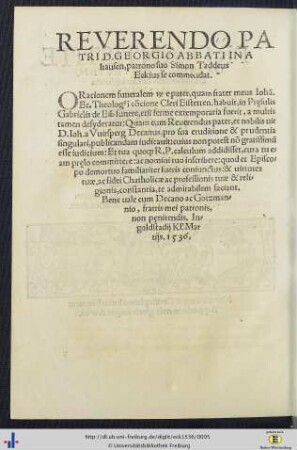 REVERENDO PA
TRI D. GEORGIO ABBATI IN A
hausen, patrono suo Simon Taddeus
Eckius se commendat.
ORationem funeralem reuerende pater, quam frater meus Iohā.
Ec. Theologus in cōcione Cleri Eistetten. habuit, in Presulis
Gabrielis de Eib funere, etsi ferme extemporaria fuerit, a multis
tamen desyderatur: Quam cum Reuerendus pater, et nobilis uir
D. Ioh. a Vuirsperg Decanus, pro sua eruditione & prudentia
singulari, publicandam iudicauit: cuius non potest nō grauissimū
esse iudicium: Et tua quoq; R. P. calculum addidisset, cura mea
eam prelo committere: ac nomini tuo inscribere: quod et Episco
po demortuo familiariter fueris coniunctus: & uirtutes
tuæ, ac fidei Chatholicæ ac professionis tuæ & reli
gionis, constantia, te admirabilem faciant.
Bene uale cum Decano ac Goezman
nio, fratris mei patronis,
non pœnitendis. In
golstadij Kl. Mar
tijs. 1536.
http://dl.ub.uni-freiburg.de/diglit/eck1536/0005
© Universitätsbibliothek Freiburg